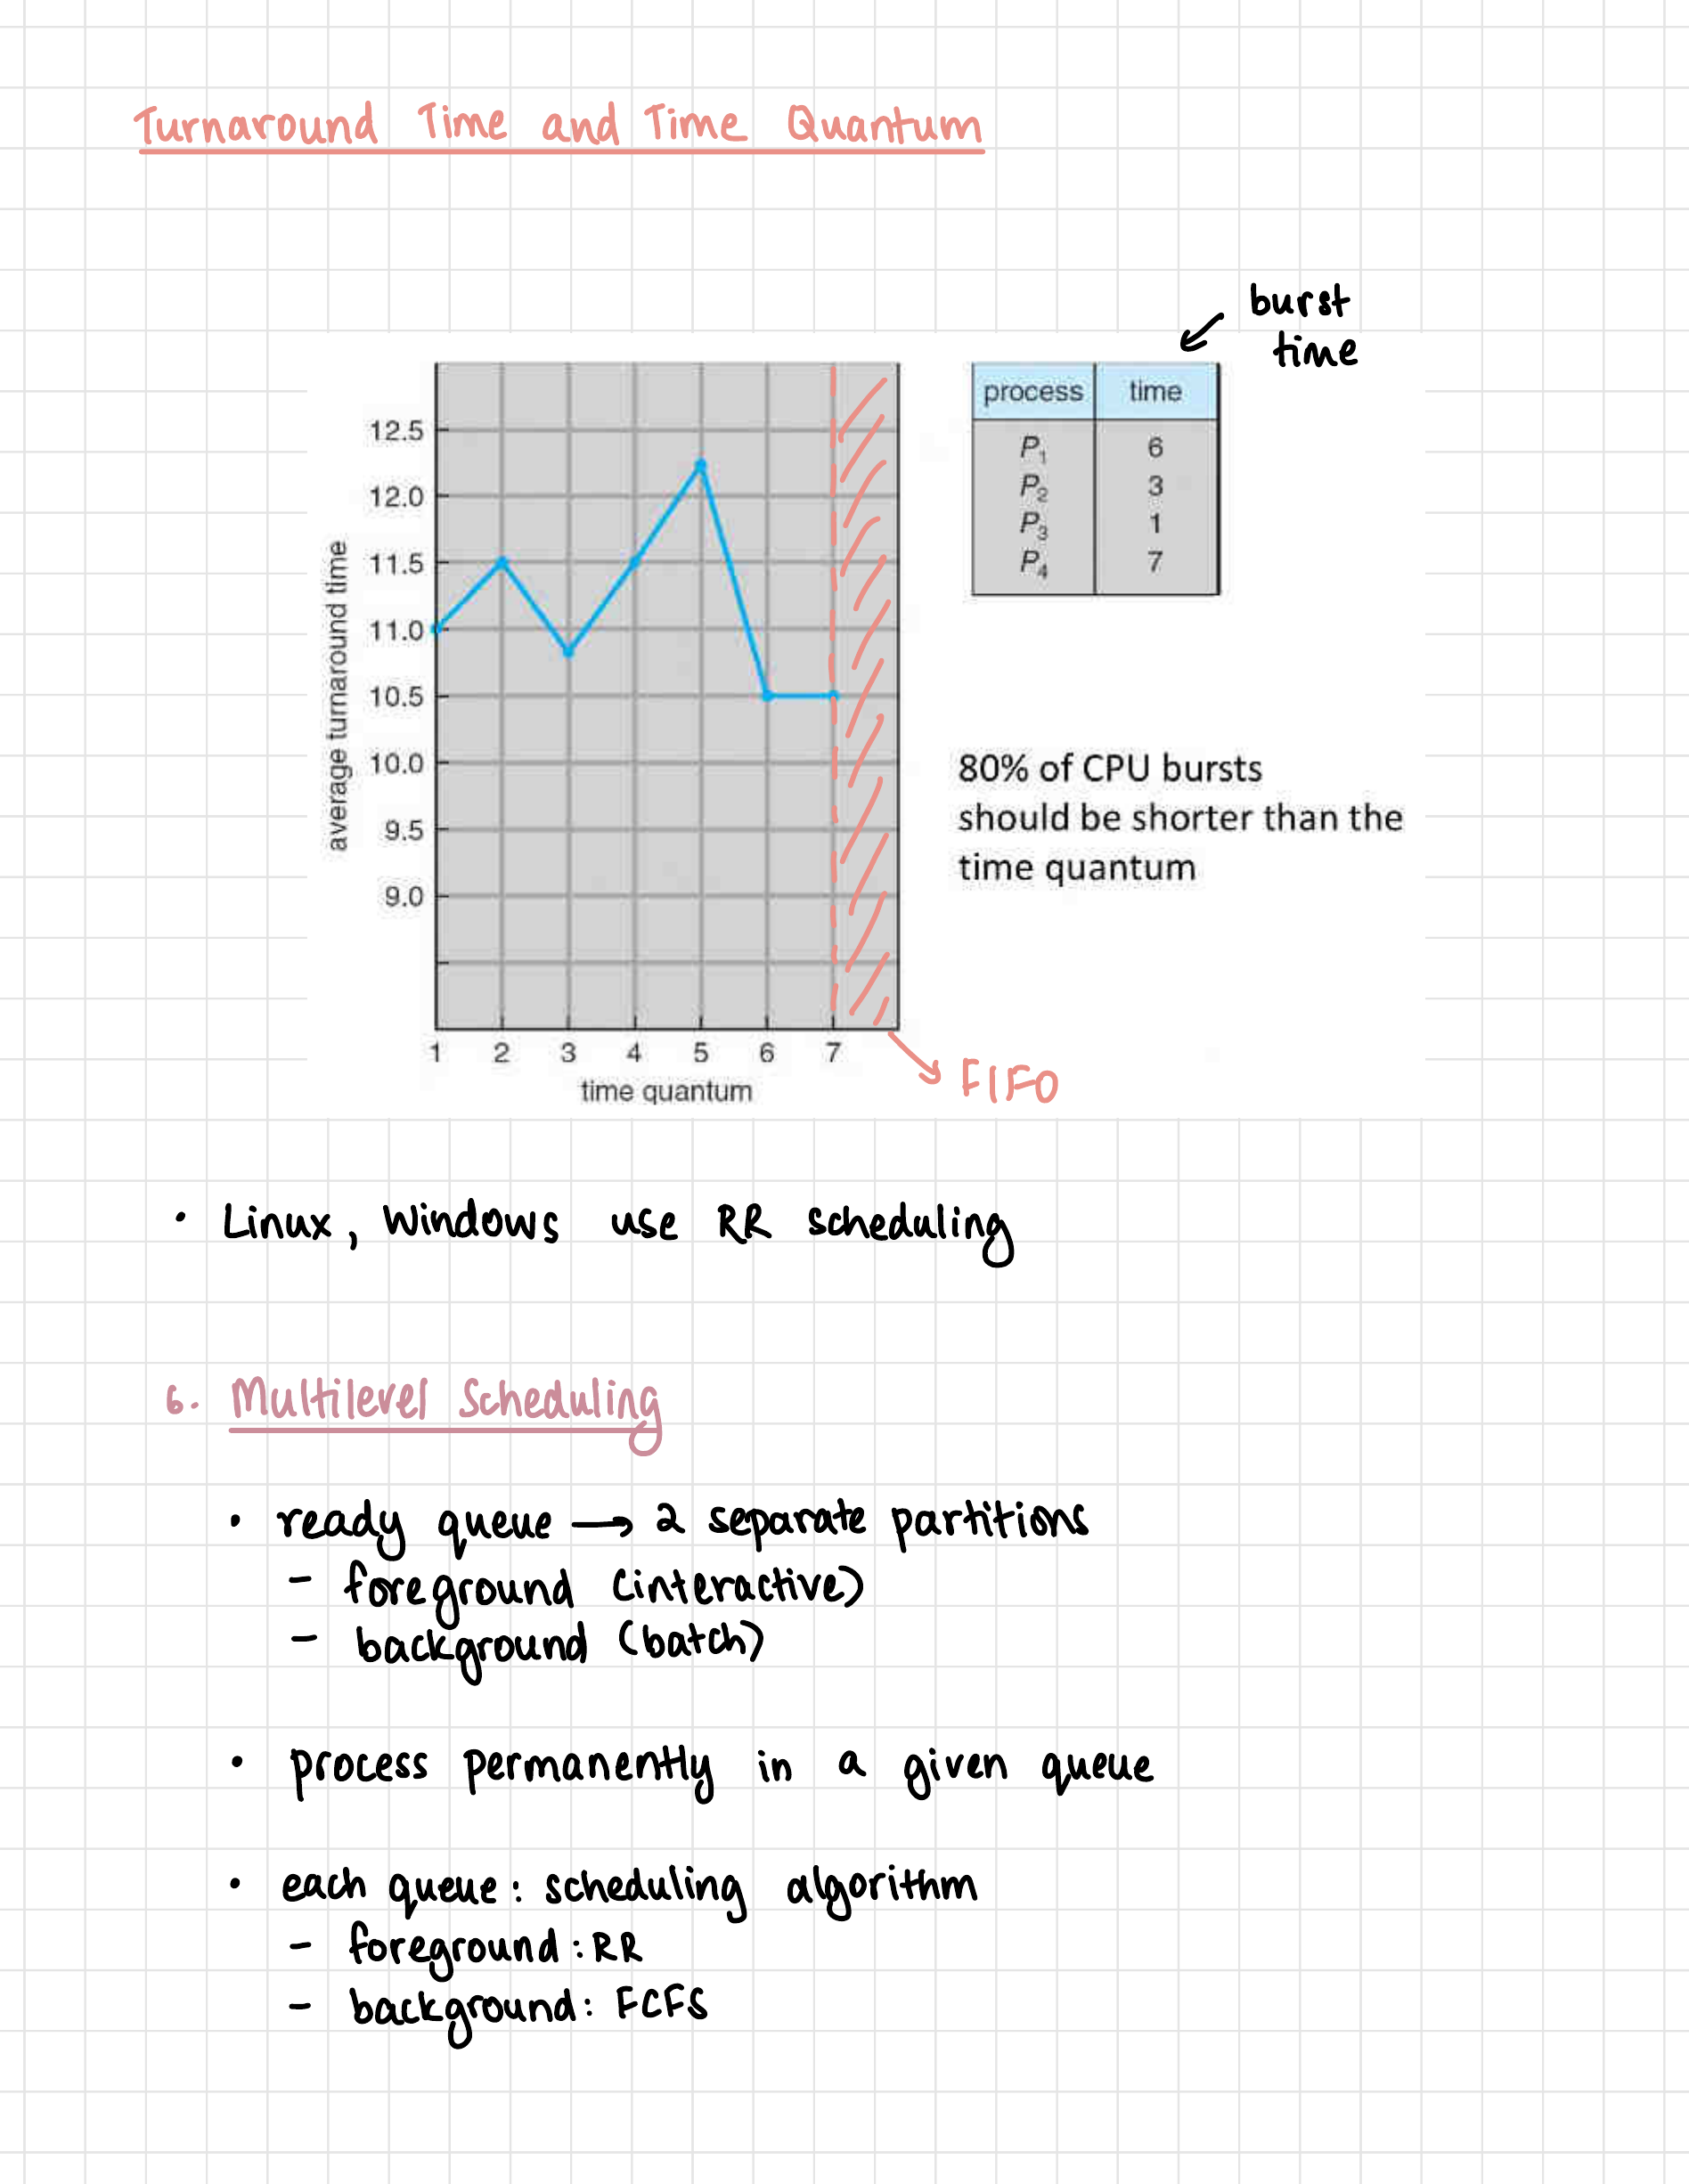 Turnaround Time and Time Quantum
burst
time
process time
P1 6
P2 3
P3 1
P4 7
average turnaround time
12.5
12.0
11.5
11.0
10.5
10.0
9.5
9.0
1 2 3 4 5 6 7
time quantum
FIFO
80% of CPU bursts
should be shorter than the
time quantum
• Linux, Windows use RR scheduling
6. Multilevel Scheduling
• ready queue → 2 separate partitions
- foreground (interactive)
- background (batch)
• process permanently in a given queue
• each queue: scheduling algorithm
- foreground: RR
- background: FCFS